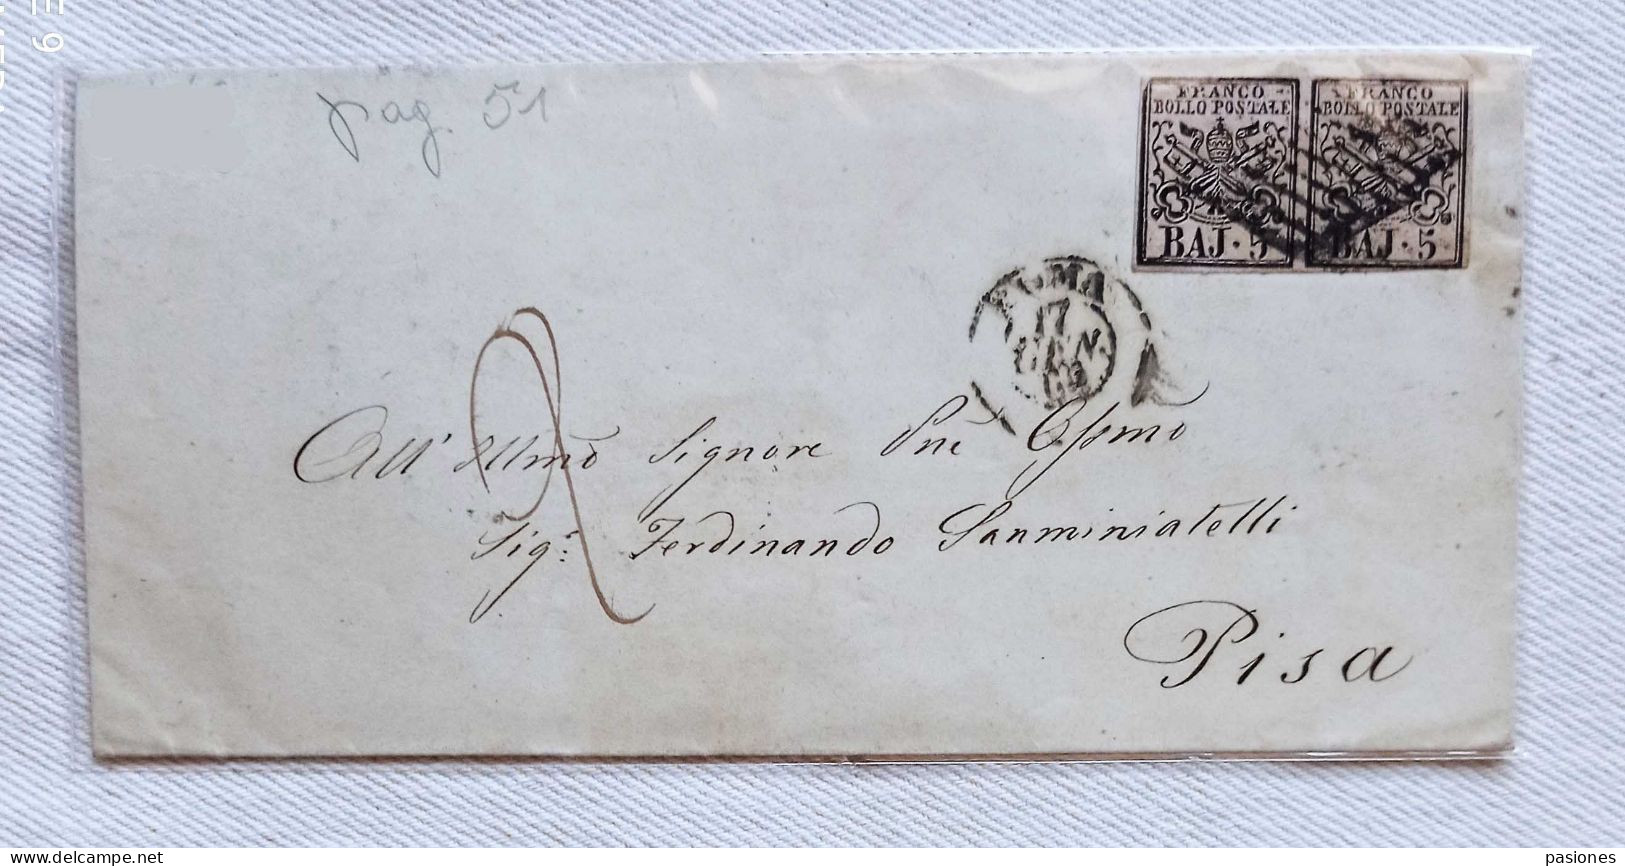 pag. 51
FRANCO
BOLLO POSTALE
BAJ · 5
FRANCO
BOLLO POSTALE
BAJ · 5
17
GEN
2
All' Illmo Signore Pne Ossmo
Sigr Ferdinando Sanminiatelli
Pisa
delcampe.net
pasiones